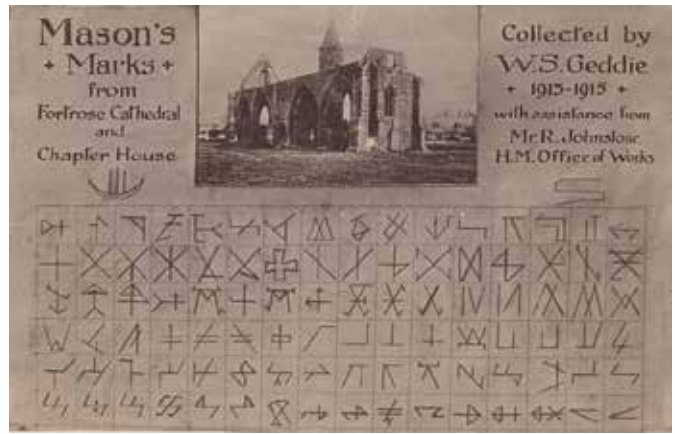 Mason's
+ Marks +
from
Fortrose Cathedral
and
Chapter House
Collected by
W.S. Geddie
+ 1913-1915 +
with assistance from
Mr. R. Johnstone
H.M. Office of Works